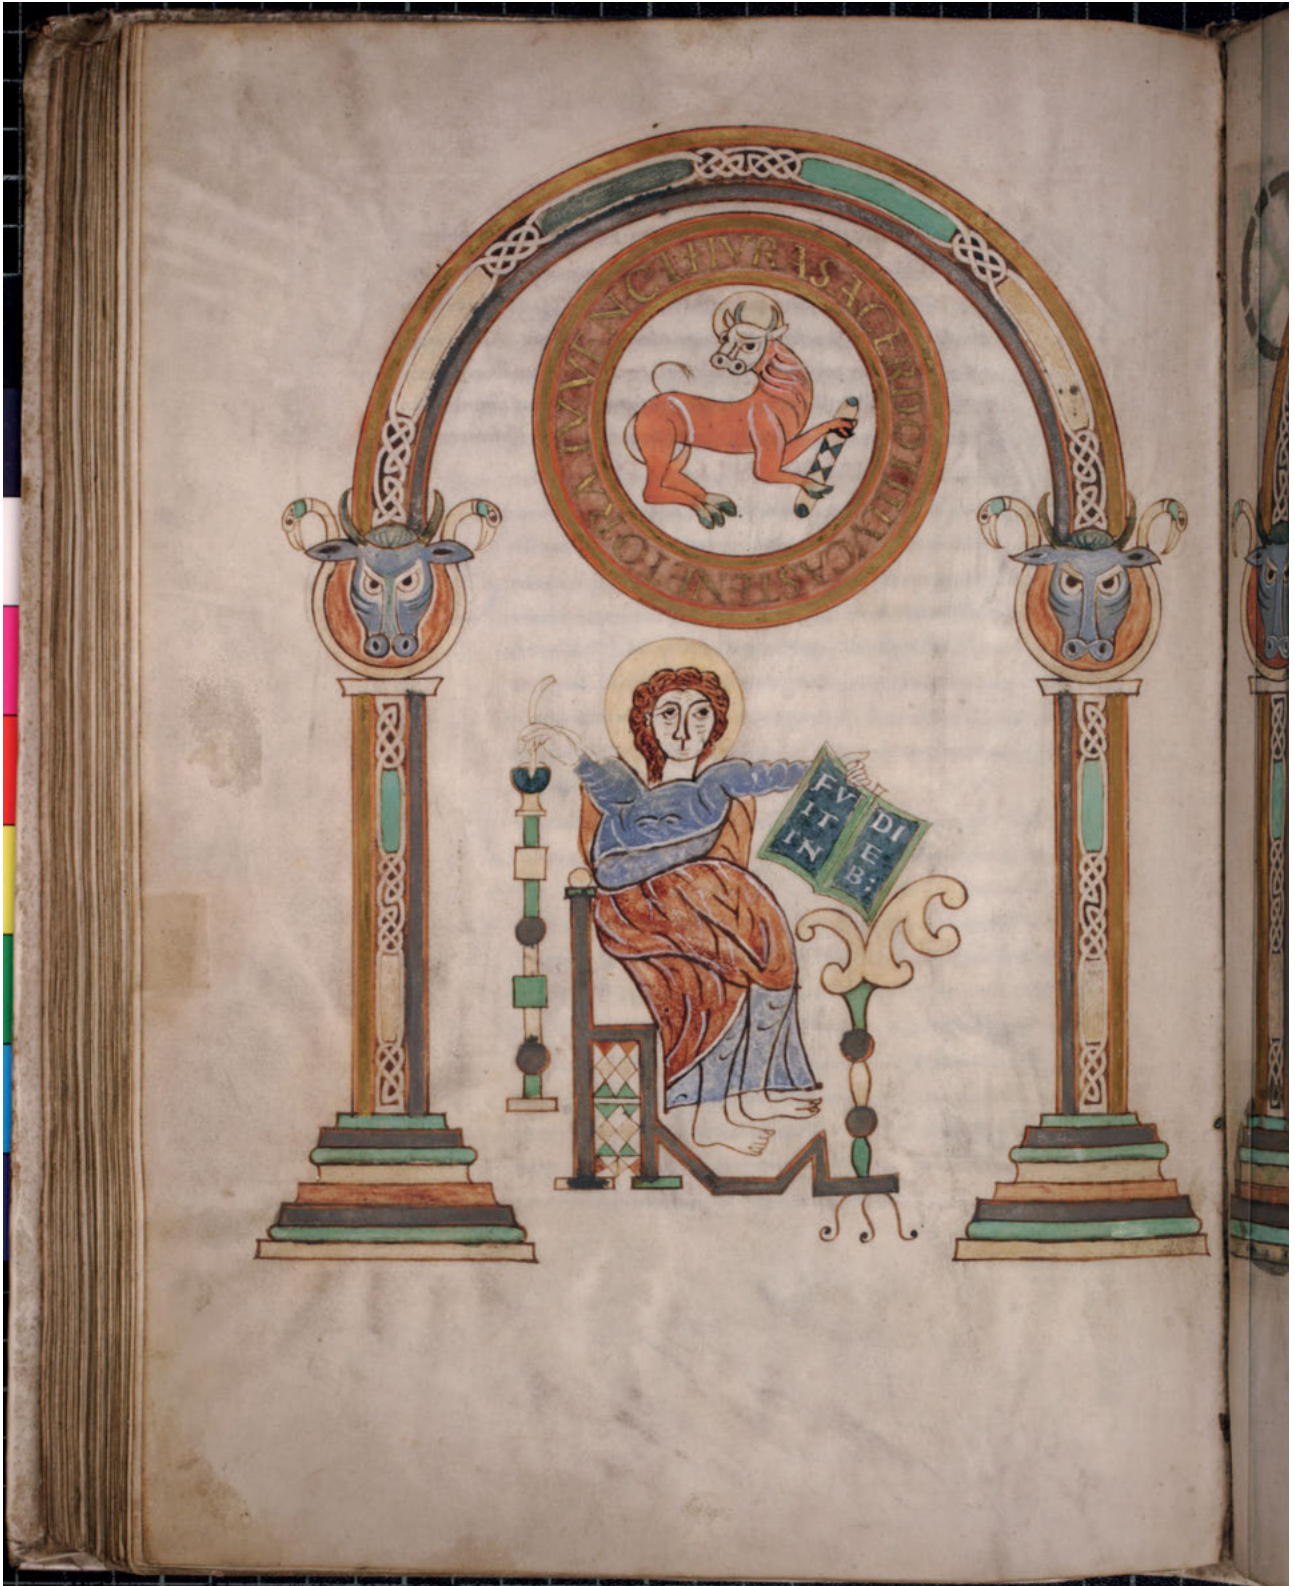 IVRA SACERDOTII LVCAS TENET ORE IVVENCI
FV
IT
IN
DI
E
B;